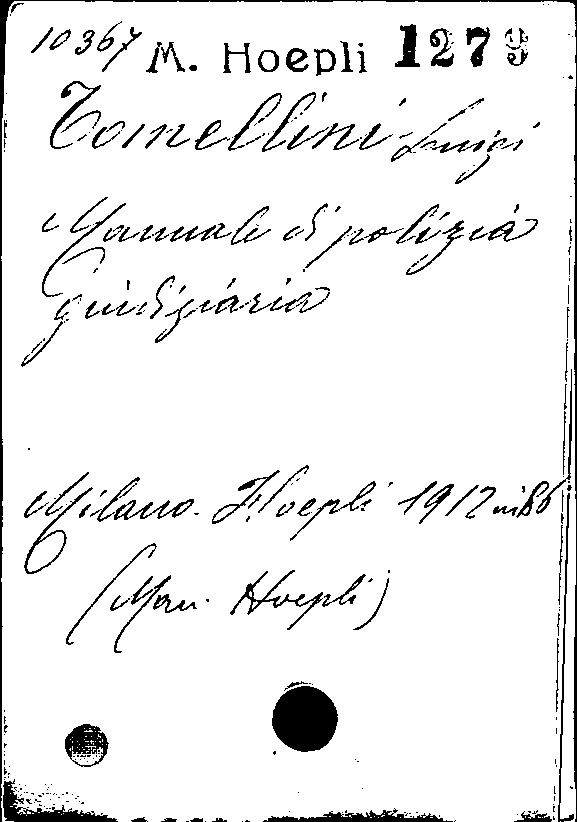 10367 M. Hoepli 1279
Tomellini Luigi
Manuale di polizia
giudiziaria
Milano. Hoepli 1912 in 16
(Man. Hoepli)